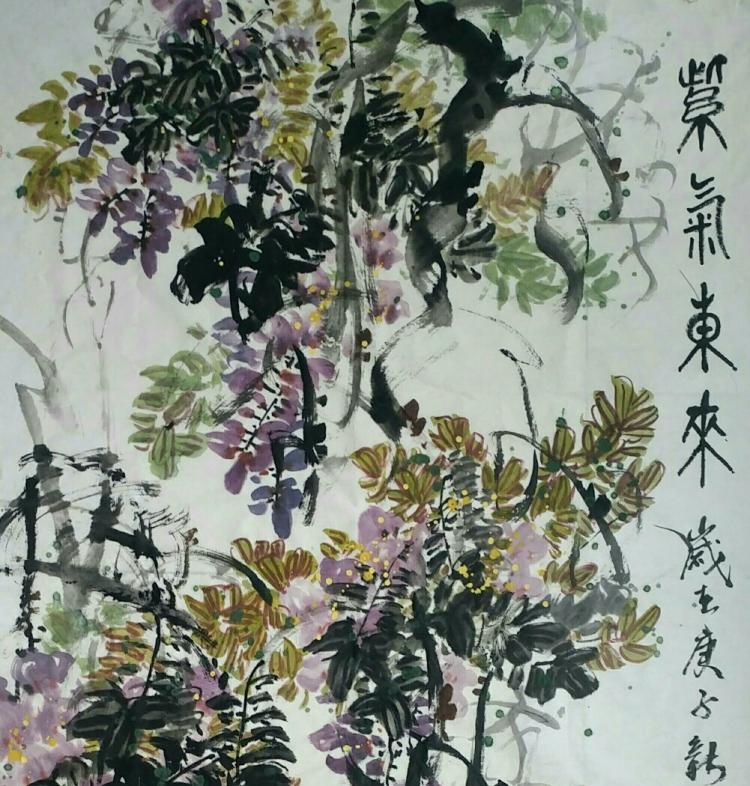 紫氣東來 歲在庚子新